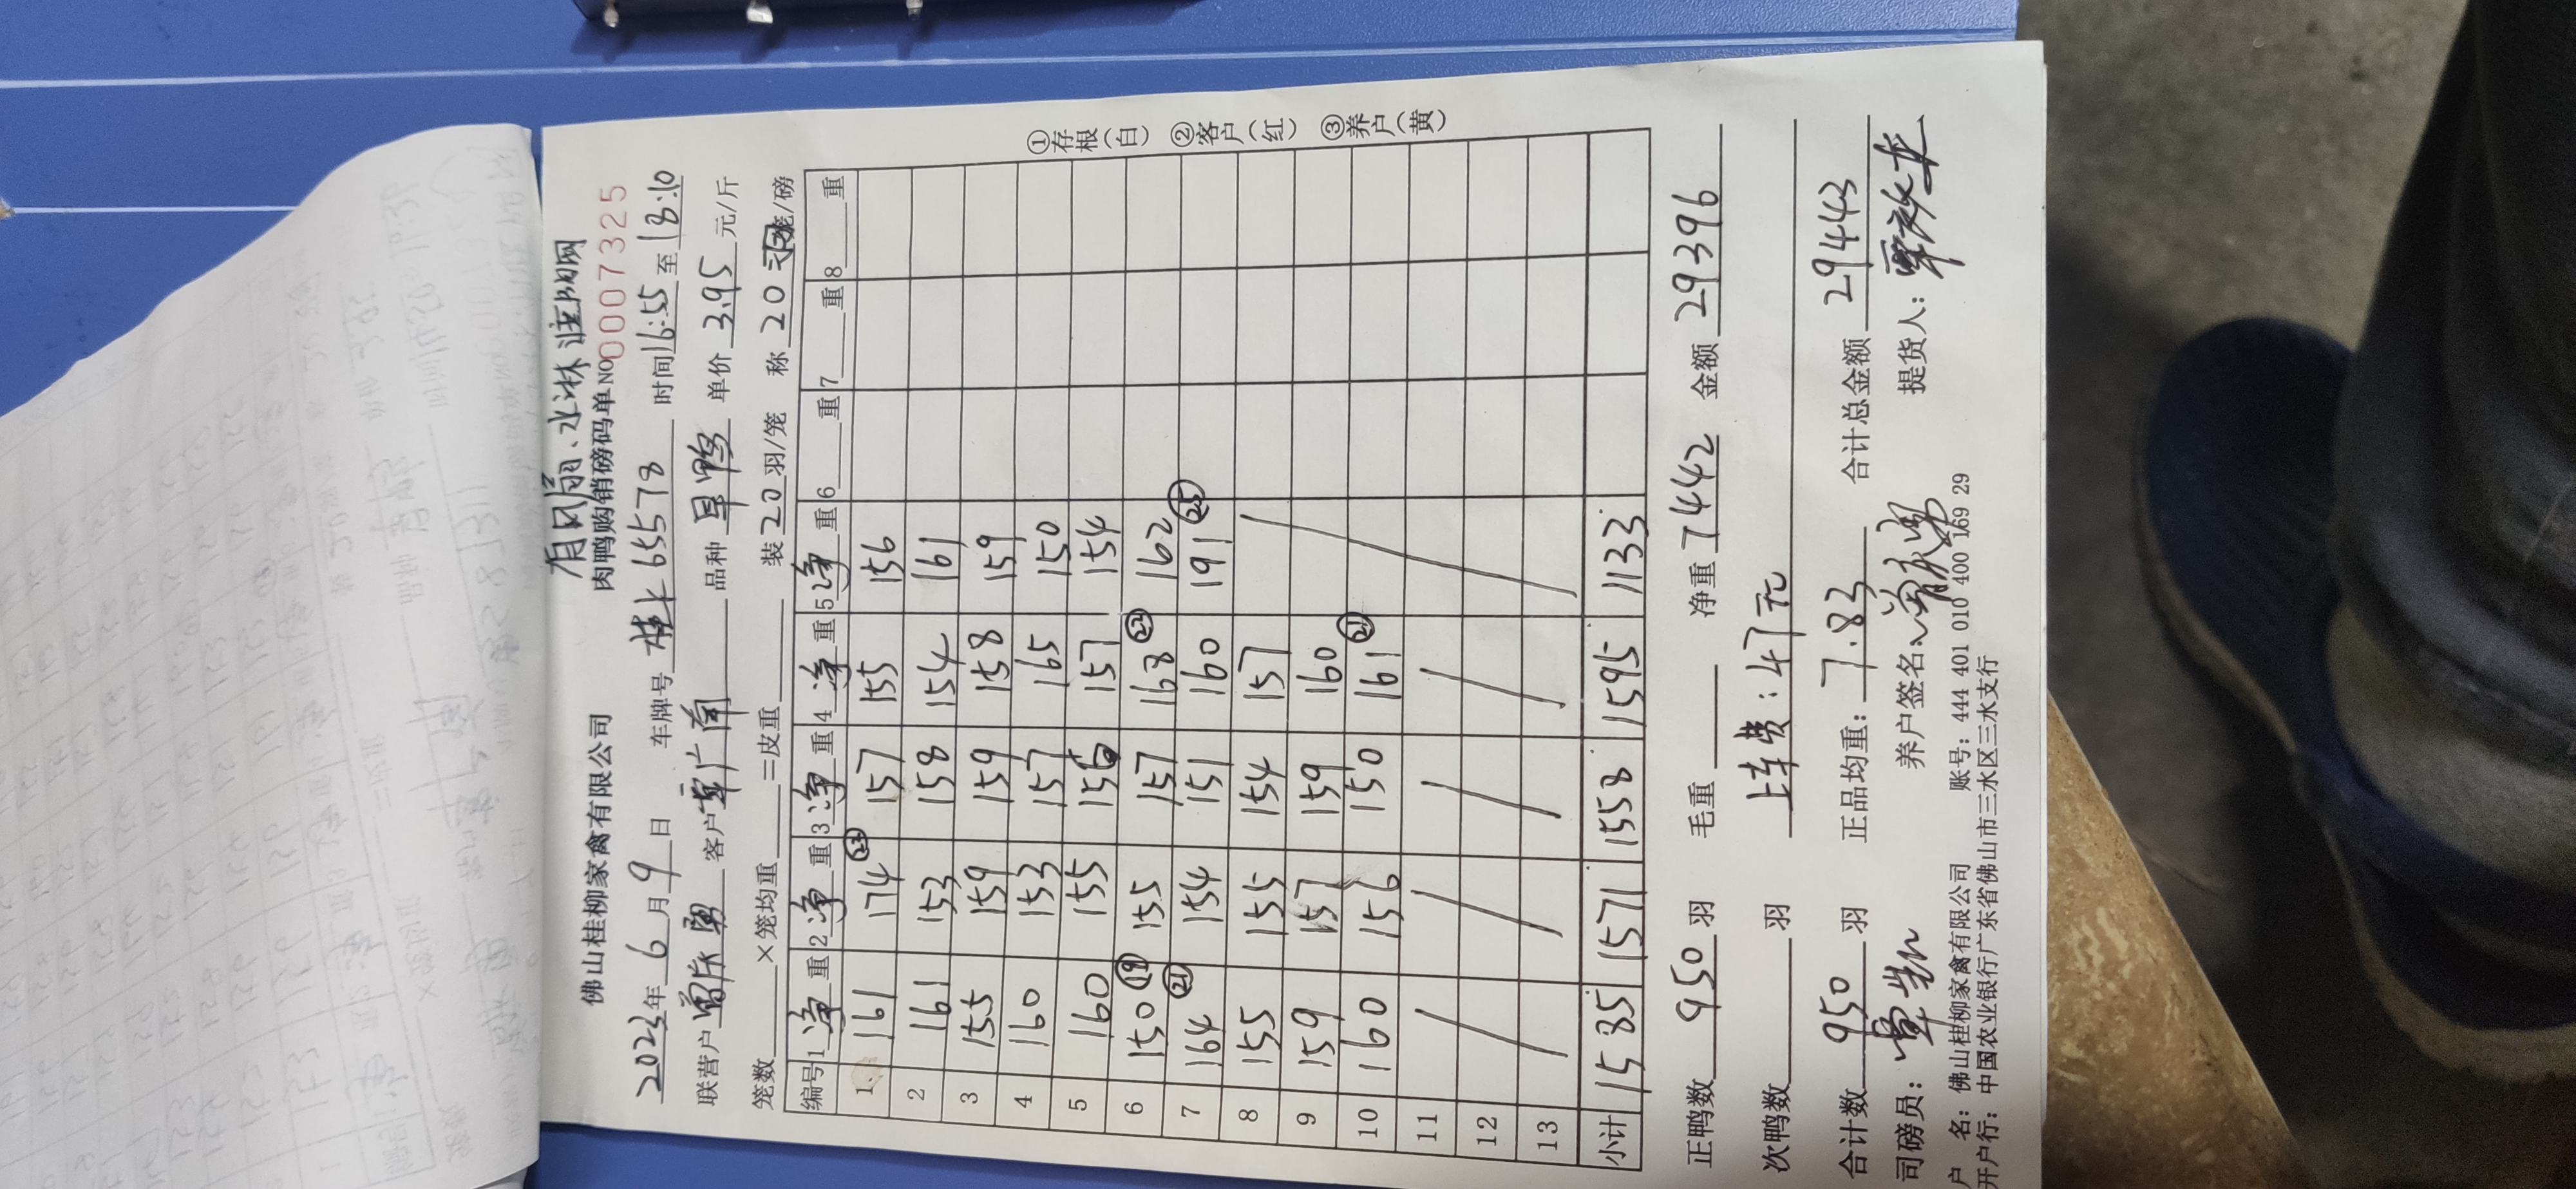 有风扇、水淋 睡的网
佛山桂柳家禽有限公司 肉鸭购销磅码单 NO 00007325
2023年 6 月 9 日 车牌号 桂L 65578 时间 16:55 至 18:10
联营户 客户 覃广南 品种 旱鸭 单价 3.95 元/斤
笼数 × 笼均重 =皮重 装 20 羽/笼 称 20 羽/磅
编号 1 净 重 2 净 重 3 净 重 4 净 重 5 净 重 6 重 7 重 8 重
1 161 174 ㉓ 157 155 156
2 161 153 158 154 161
3 155 159 159 158 159
4 160 153 157 165 150
5 160 155 156 157 154
6 150 ⑲ 155 157 168 ㉒ 162
7 164 ㉑ 154 151 160 191 ㉕
8 155 155 154 157
9 159 157 159 160
10 160 156 150 161 ㉑
11
12
13
小计 1585 1571 1558 1595 1133
①存根(白) ②客户(红) ③养户(黄)
正鸭数 950 羽 毛重 净重 7442 金额 29396
次鸭数 羽 上车费:47元
合计数 950 羽 正品均重: 7.83 合计总金额 29443
司磅员: 养户签名: 提货人:
户 名: 佛山桂柳家禽有限公司 账号: 444 401 010 400 169 29
开户行: 中国农业银行广东省佛山市三水区三水支行